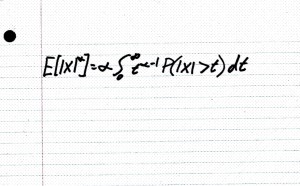 E[|X|^α] = α ∫_0^∞ t^{α-1} P(|X| > t) dt